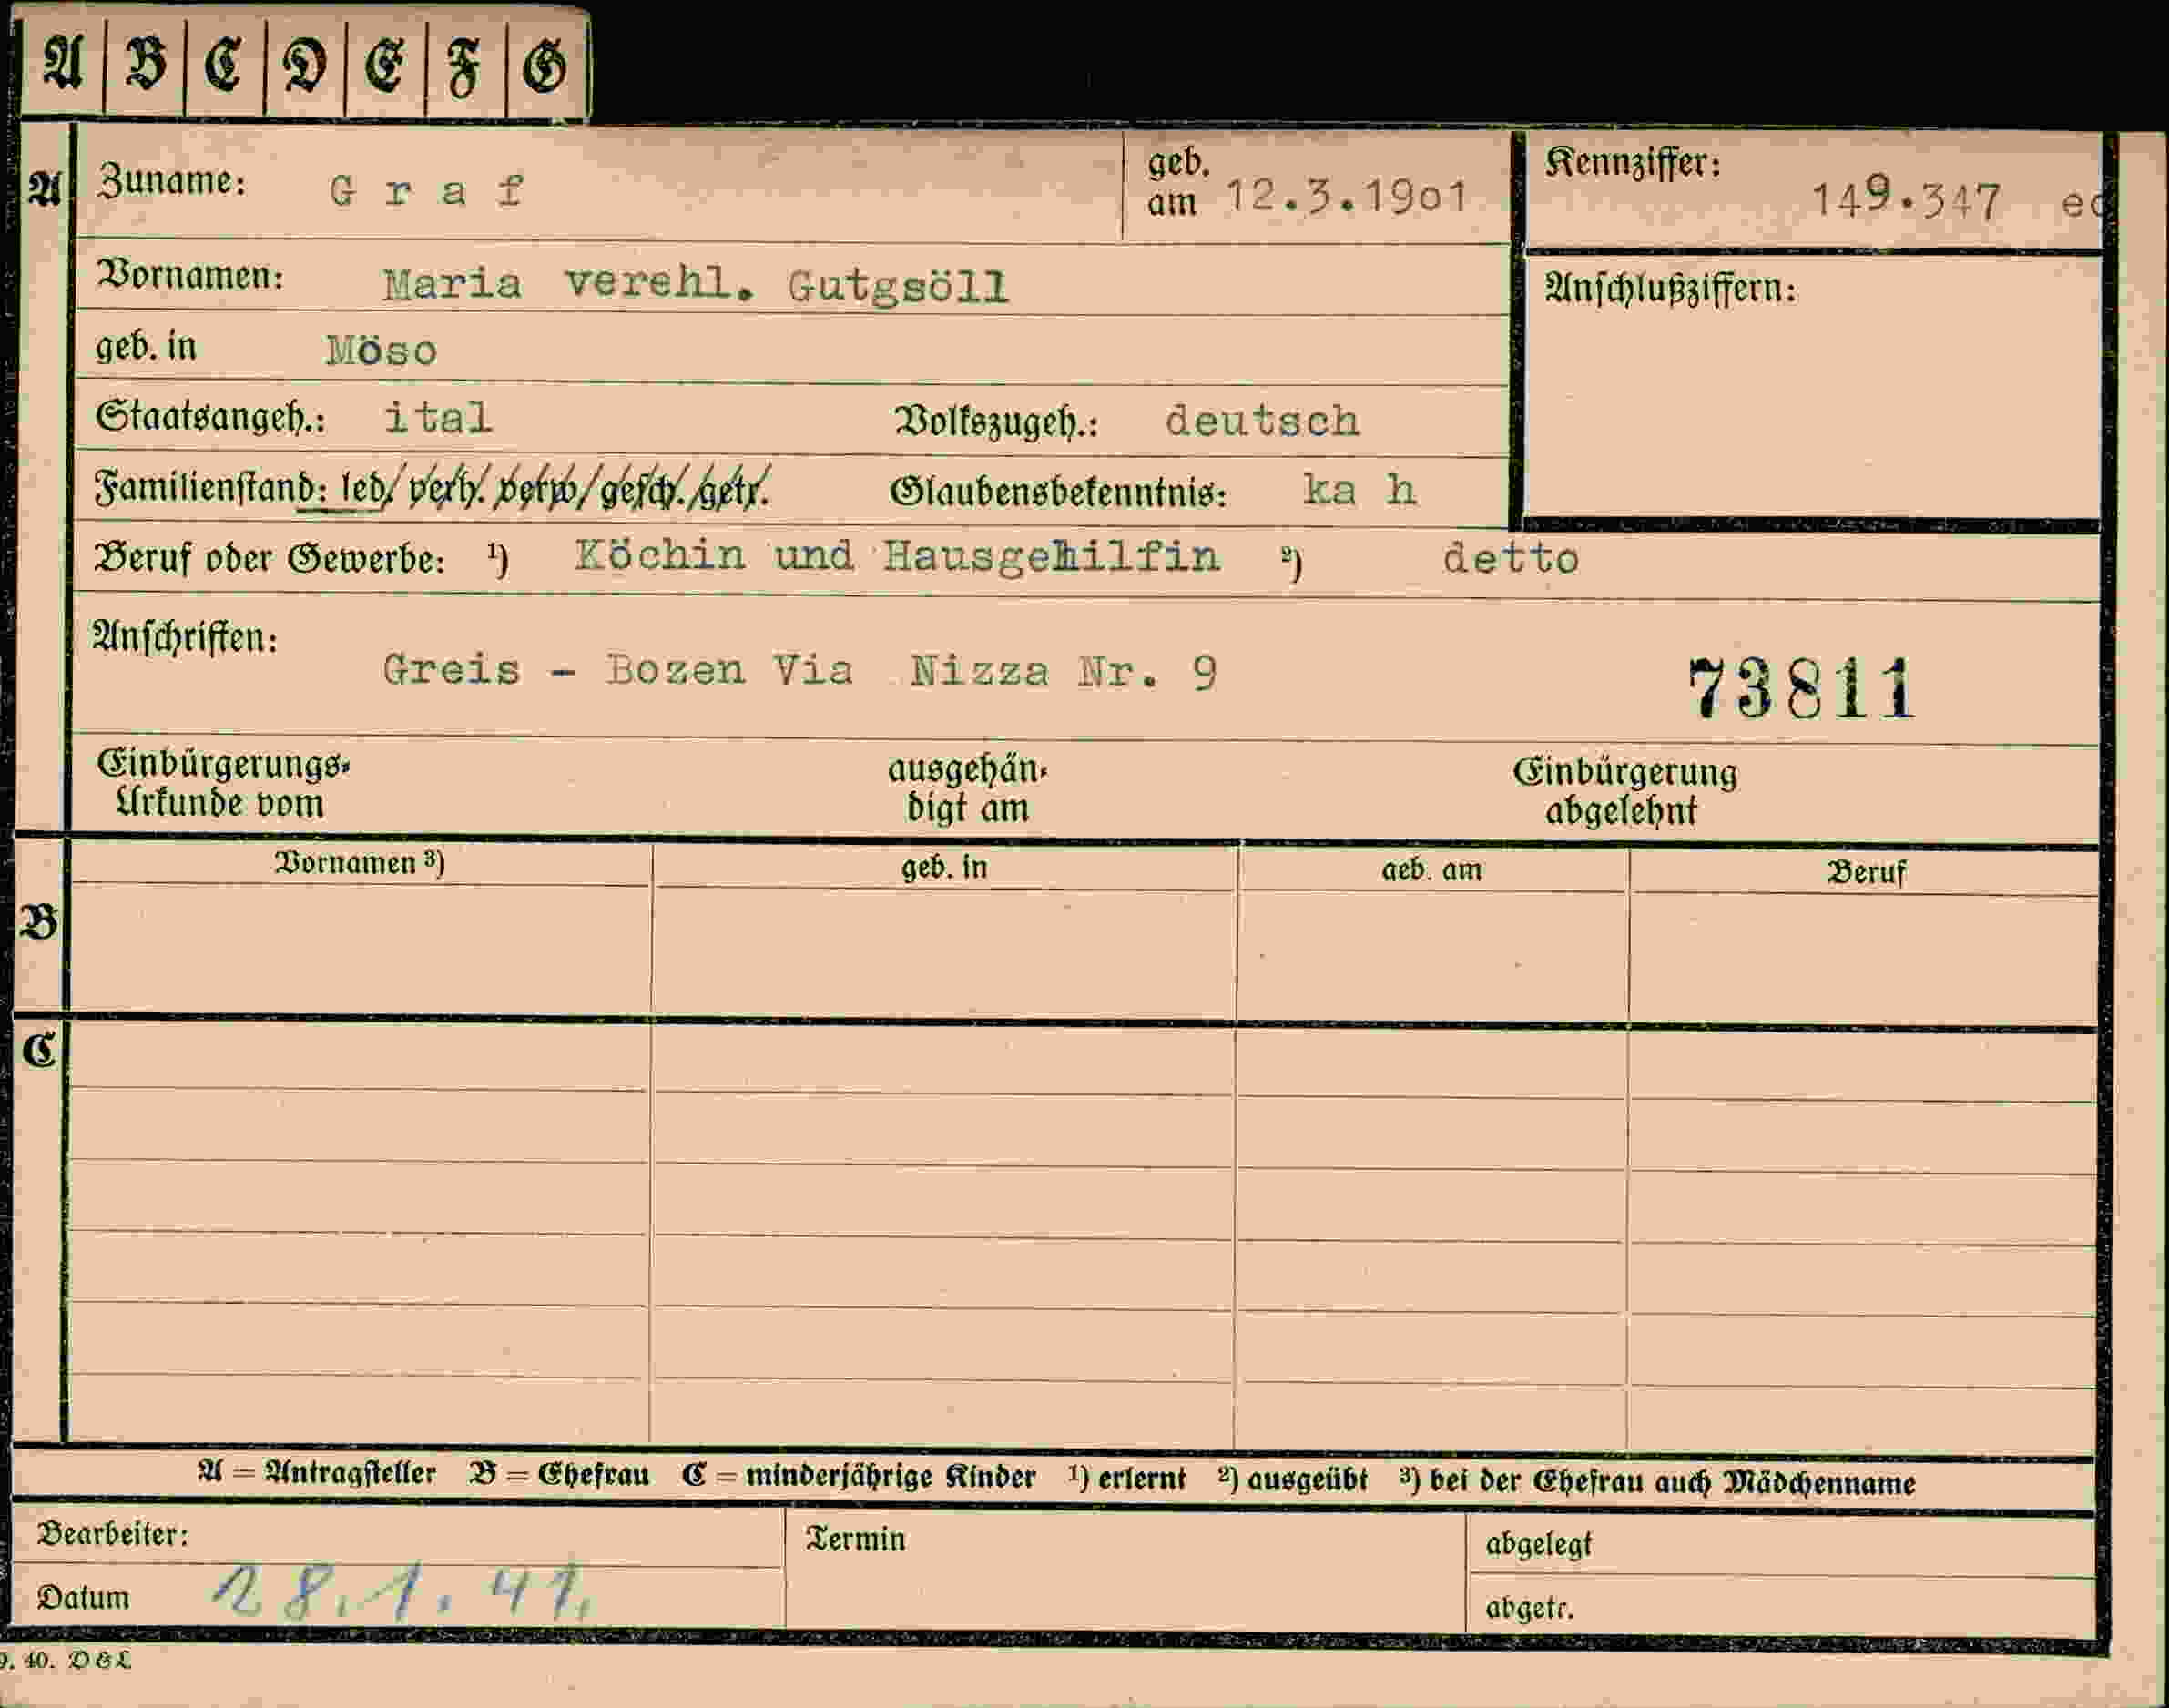 A B C D E F G
A Zuname: Graf geb. am 12.3.1901 Kennziffer: 149.347
Vornamen: Maria verehl. Gutgsöll Anschlußziffern:
geb. in Möso
Staatsangeh.: ital Volkszugeh.: deutsch
Familienstand: led/verh./verw/gesch./getr. Glaubensbekenntnis: ka h
Beruf oder Gewerbe: ¹) Köchin und Hausgehilfin ²) detto
Anschriften:
Greis - Bozen Via Nizza Nr. 9 73811
Einbürgerungs- ausgehän- Einbürgerung
Urkunde vom digt am abgelehnt
Vornamen ³) geb. in geb. am Beruf
B
C
A = Antragsteller B = Ehefrau C = minderjährige Kinder ¹) erlernt ²) ausgeübt ³) bei der Ehefrau auch Mädchenname
Bearbeiter: Termin abgelegt
Datum 28.1.41. abgetr.
9. 40. D&L